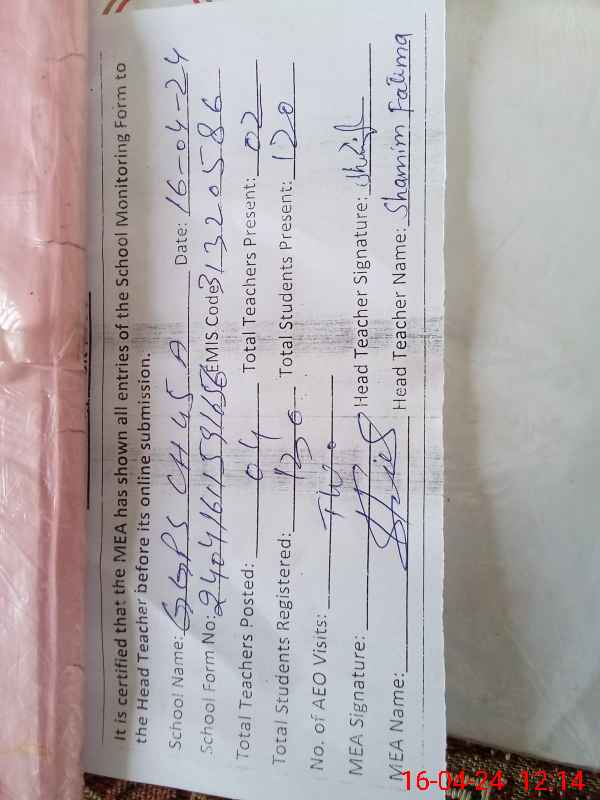 It is certified that the MEA has shown all entries of the School Monitoring Form to
the Head Teacher before its online submission.
School Name: GGPS CH 45 A Date: 16-04-24
School Form No: EMIS Code: 31320586
Total Teachers Posted: 04 Total Teachers Present: 02
Total Students Registered: 130 Total Students Present: 120
No. of AEO Visits: Two
MEA Signature: Head Teacher Signature:
MEA Name: Head Teacher Name: Shamim Fatima
16-04-24 12:14